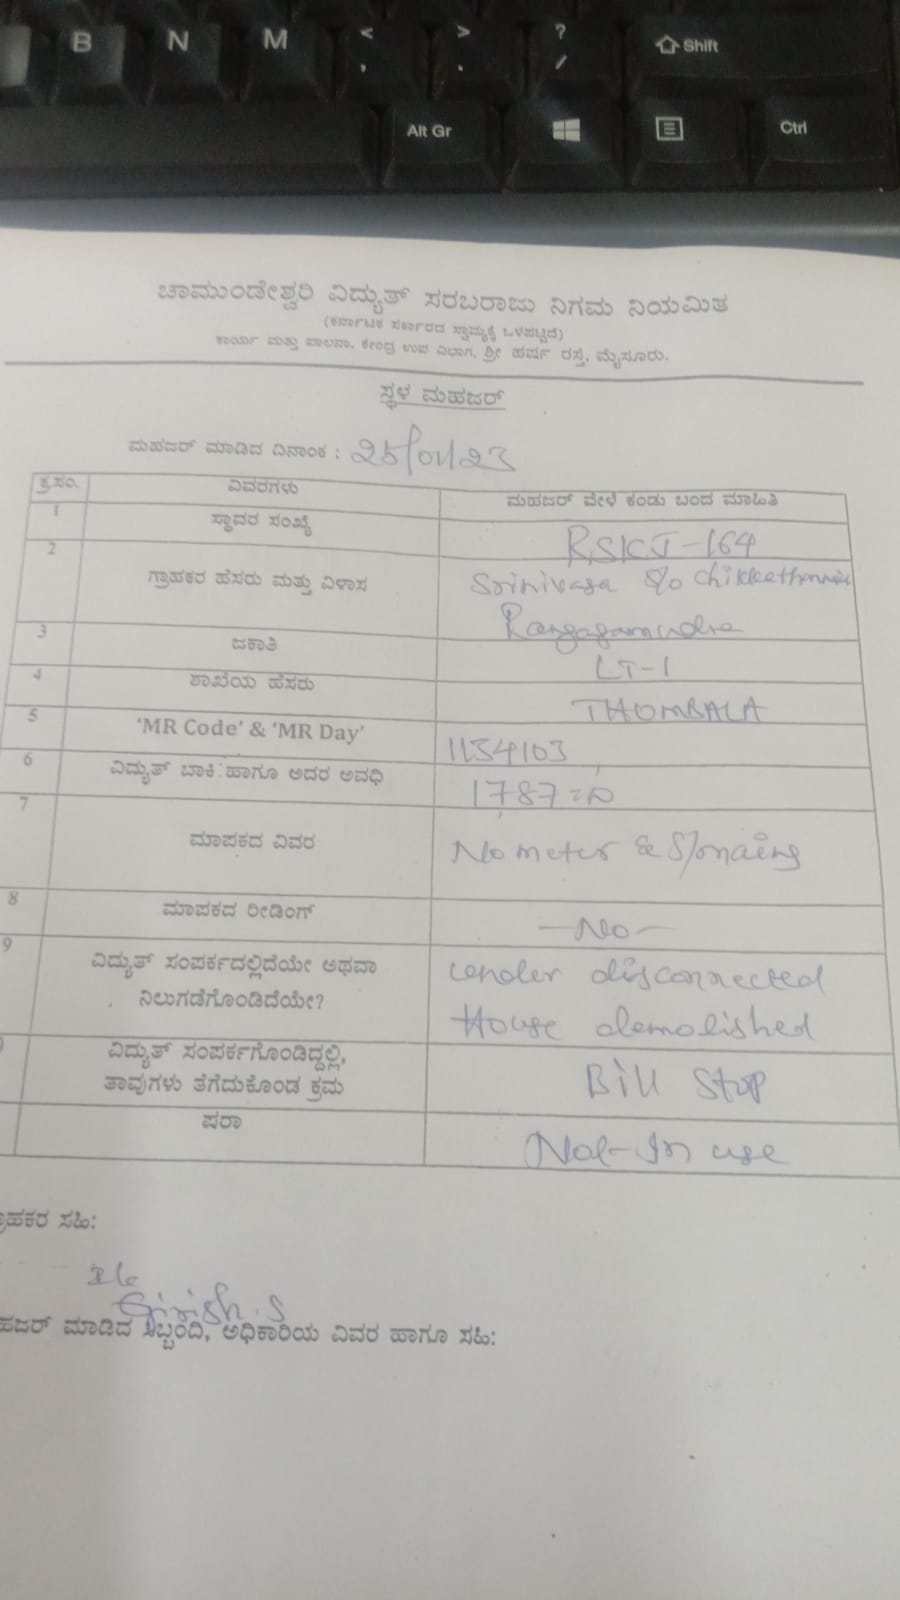 B N M < , > . ? / Shift
Alt Gr Ctrl
ಚಾಮುಂಡೇಶ್ವರಿ ವಿದ್ಯುತ್ ಸರಬರಾಜು ನಿಗಮ ನಿಯಮಿತ
(ಕರ್ನಾಟಕ ಸರ್ಕಾರದ ಸ್ವಾಮ್ಯಕ್ಕೆ ಒಳಪಟ್ಟಿದೆ)
ಕಾರ್ಯ ಮತ್ತು ಪಾಲನಾ, ಕೇಂದ್ರ ಉಪ ವಿಭಾಗ, ಶ್ರೀ ಹರ್ಷ ರಸ್ತೆ, ಮೈಸೂರು.
ಸ್ಥಳ ಮಹಜರ್
ಮಹಜರ್ ಮಾಡಿದ ದಿನಾಂಕ : 25/01/23
ಕ್ರ.ಸಂ. ವಿವರಗಳು ಮಹಜರ್ ವೇಳೆ ಕಂಡು ಬಂದ ಮಾಹಿತಿ
1 ಸ್ಥಾವರ ಸಂಖ್ಯೆ RSKJ-164
2 ಗ್ರಾಹಕರ ಹೆಸರು ಮತ್ತು ವಿಳಾಸ Srinivasa S/o
3 ಜಕಾತಿ LT-1
4 ಶಾಖೆಯ ಹೆಸರು THOMBALA
5 'MR Code' & 'MR Day' 1154103
6 ವಿದ್ಯುತ್ ಬಾಕಿ ಹಾಗೂ ಅದರ ಅವಧಿ 1787
7 ಮಾಪಕದ ವಿವರ No meter & S/mains
8 ಮಾಪಕದ ರೀಡಿಂಗ್ -No-
9 ವಿದ್ಯುತ್ ಸಂಪರ್ಕದಲ್ಲಿದೆಯೇ ಅಥವಾ under disconnected
ನಿಲುಗಡೆಗೊಂಡಿದೆಯೇ? House demolished
ವಿದ್ಯುತ್ ಸಂಪರ್ಕಗೊಂಡಿದ್ದಲ್ಲಿ, Bill Stop
ತಾವುಗಳು ತೆಗೆದುಕೊಂಡ ಕ್ರಮ
ಷರಾ Not-In use
ಸಹಿ:
Girish.S
ಮಾಡಿದ ಸಿಬ್ಬಂದಿ, ಅಧಿಕಾರಿಯ ವಿವರ ಹಾಗೂ ಸಹಿ: